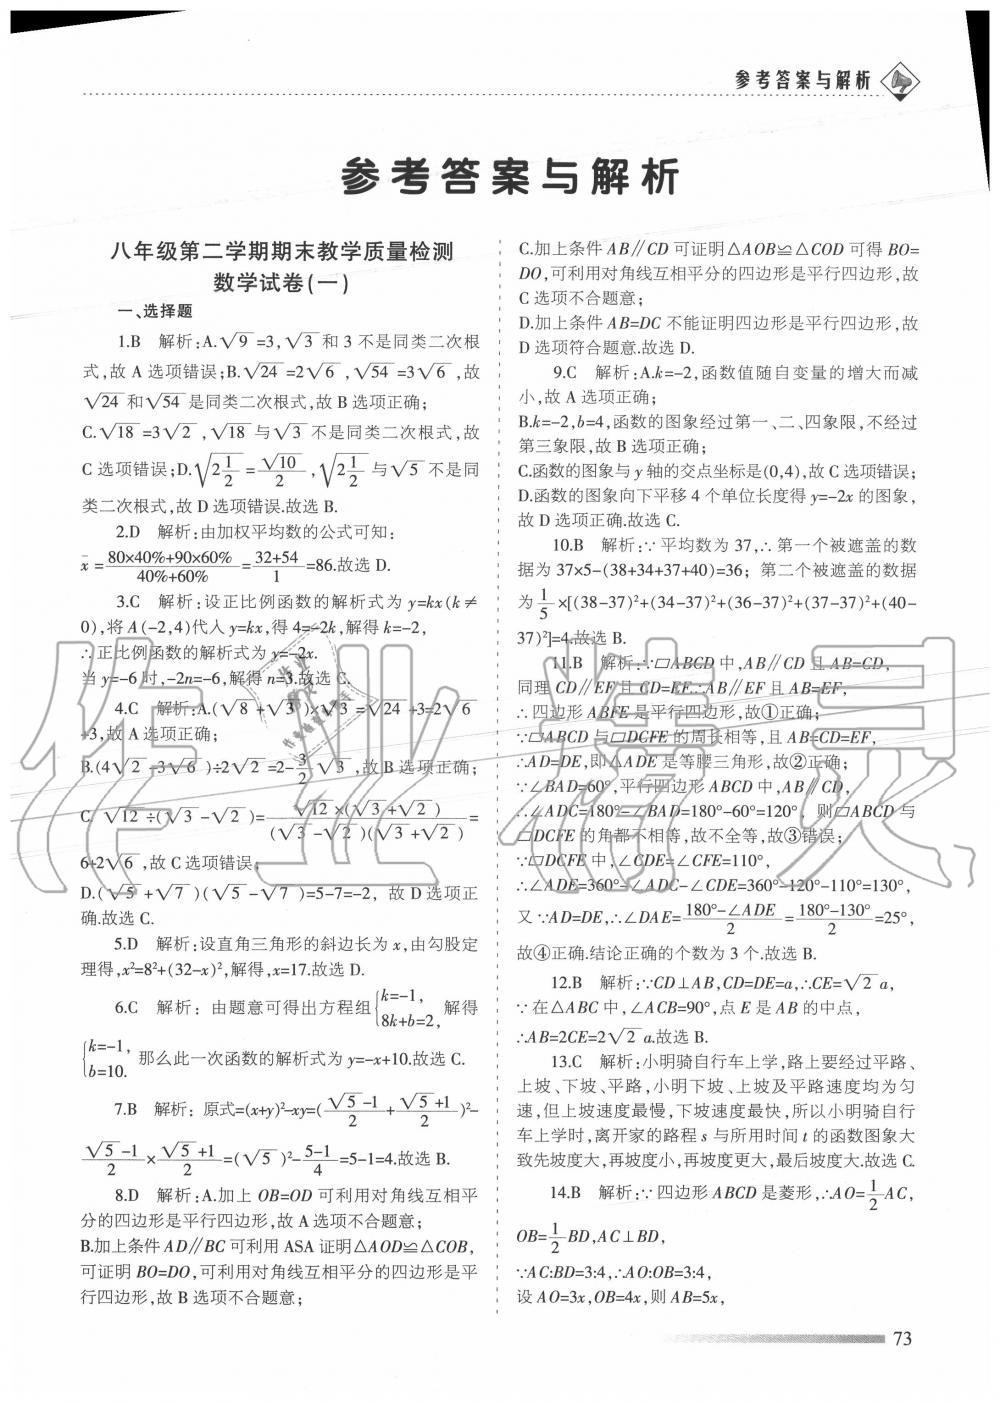 参考答案与解析
参考答案与解析
八年级第二学期期末教学质量检测
数学试卷(一)
一、选择题
1.B 解析:A.√9=3,√3和3不是同类二次根
式,故A选项错误;B.√24=2√6,√54=3√6,故
√24和√54是同类二次根式,故B选项正确;
C.√18=3√2,√18与√3不是同类二次根式,故
C选项错误;D.√(2 1/2)=√10/2,√(2 1/2)与√5不是同
类二次根式,故D选项错误.故选B.
2.D 解析:由加权平均数的公式可知:
x̄=(80×40%+90×60%)/(40%+60%)=(32+54)/1=86.故选D.
3.C 解析:设正比例函数的解析式为y=kx(k≠
0),将A(-2,4)代入y=kx,得4=-2k,解得k=-2,
∴正比例函数的解析式为y=-2x.
当y=-6时,-2n=-6,解得n=3.故选C.
4.C 解析:A.(√8+√3)×√3=√24+3=2√6
+3,故A选项正确;
B.(4√2-3√6)÷2√2=2-3/2√3,故B选项正确;
C.√12÷(√3-√2)=√12×(√3+√2)/((√3-√2)(√3+√2))=
6+2√6,故C选项错误;
D.(√5+√7)(√5-√7)=5-7=-2,故D选项正
确.故选C.
5.D 解析:设直角三角形的斜边长为x,由勾股定
理得,x²=8²+(32-x)²,解得,x=17.故选D.
6.C 解析:由题意可得出方程组{k=-1, 8k+b=2, 解得
{k=-1, b=10. 那么此一次函数的解析式为y=-x+10.故选C.
7.B 解析:原式=(x+y)²-xy=((√5-1)/2+(√5+1)/2)²-
(√5-1)/2×(√5+1)/2=(√5)²-(5-1)/4=5-1=4.故选B.
8.D 解析:A.加上OB=OD可利用对角线互相平
分的四边形是平行四边形,故A选项不合题意;
B.加上条件AD∥BC可利用ASA证明△AOD≌△COB,
可证明BO=DO,可利用对角线互相平分的四边形是平
行四边形,故B选项不合题意;
C.加上条件AB∥CD可证明△AOB≌△COD可得BO=
DO,可利用对角线互相平分的四边形是平行四边形,故
C选项不合题意;
D.加上条件AB=DC不能证明四边形是平行四边形,故
D选项符合题意.故选D.
9.C 解析:A.k=-2,函数值随自变量的增大而减
小,故A选项正确;
B.k=-2,b=4,函数的图象经过第一、二、四象限,不经过
第三象限,故B选项正确;
C.函数的图象与y轴的交点坐标是(0,4),故C选项错误;
D.函数的图象向下平移4个单位长度得y=-2x的图象,
故D选项正确.故选C.
10.B 解析:∵平均数为37,∴第一个被遮盖的数
据为37×5-(38+34+37+40)=36;第二个被遮盖的数据
为1/5×[(38-37)²+(34-37)²+(36-37)²+(37-37)²+(40-
37)²]=4.故选B.
11.B 解析:∵▱ABCD中,AB∥CD且AB=CD,
同理CD∥EF且CD=EF∴AB∥EF且AB=EF,
∴四边形ABFE是平行四边形,故①正确;
∵▱ABCD与▱DCFE的周长相等,且AB=CD=EF,
∴AD=DE,即△ADE是等腰三角形,故②正确;
∵∠BAD=60°,平行四边形ABCD中,AB∥CD,
∴∠ADC=180°-∠BAD=180°-60°=120°,则▱ABCD与
▱DCFE的角都不相等,故不全等,故③错误;
∵▱DCFE中,∠CDE=∠CFE=110°,
∴∠ADE=360°-∠ADC-∠CDE=360°-120°-110°=130°,
又∵AD=DE,∴∠DAE=(180°-∠ADE)/2=(180°-130°)/2=25°,
故④正确.结论正确的个数为3个.故选B.
12.B 解析:∵CD⊥AB,CD=DE=a,∴CE=√2a,
∵在△ABC中,∠ACB=90°,点E是AB的中点,
∴AB=2CE=2√2a.故选B.
13.C 解析:小明骑自行车上学,路上要经过平路、
上坡、下坡、平路,小明下坡、上坡及平路速度均为匀
速,但上坡速度最慢,下坡速度最快,所以小明骑自行
车上学时,离开家的路程s与所用时间t的函数图象大
致先坡度大,再坡度小,再坡度更大,最后坡度大.故选C.
14.B 解析:∵四边形ABCD是菱形,∴AO=1/2AC,
OB=1/2BD,AC⊥BD,
∵AC:BD=3:4,∴AO:OB=3:4,
设AO=3x,OB=4x,则AB=5x,
73
作业精灵